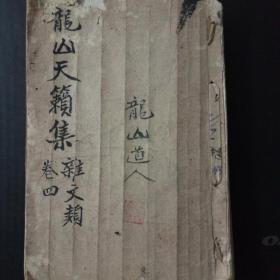 龍山天籟集
雜文類
卷四
龍山道人